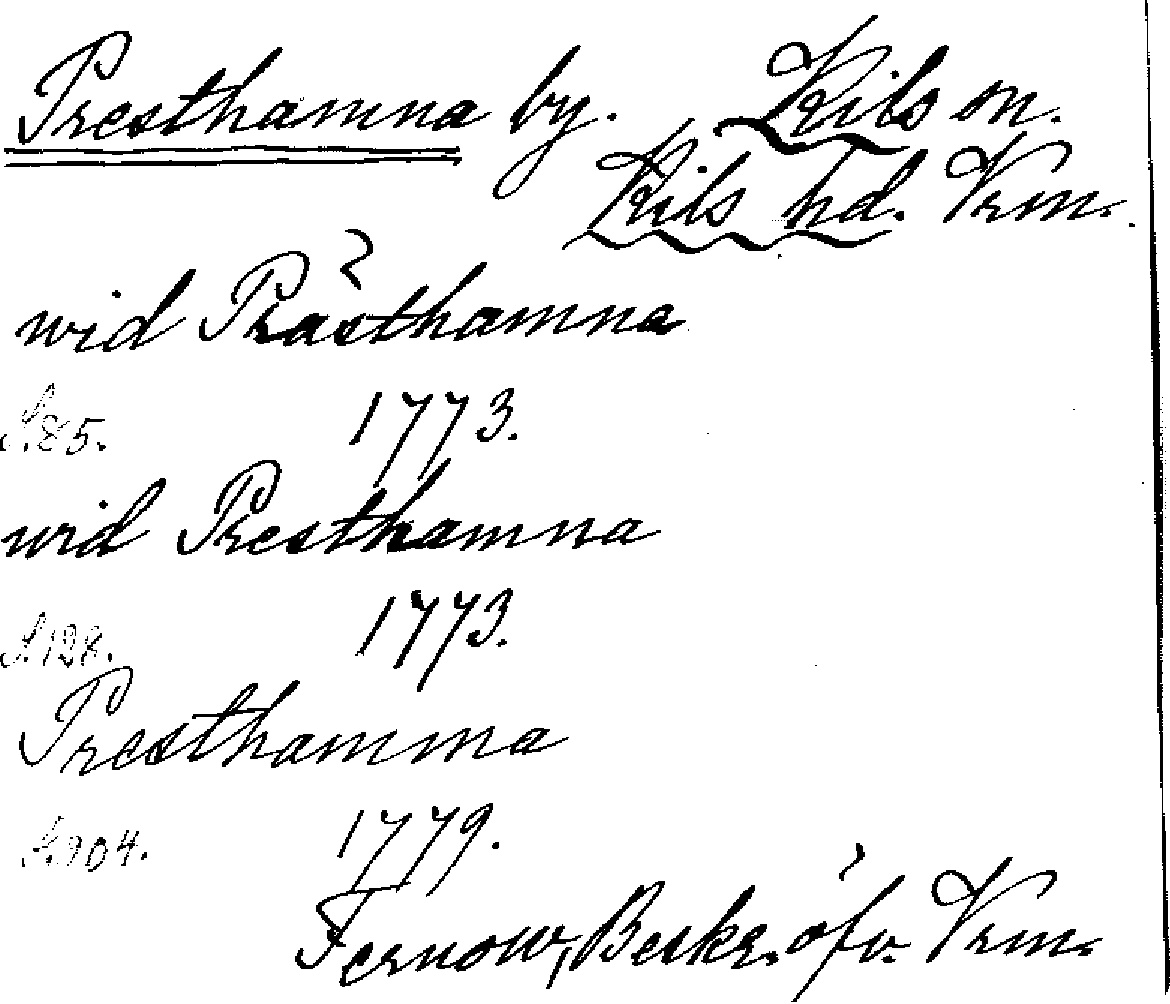 Presthamna by. Kils sn.
Kils hd. Vrm.
wid Prästhamna
S.85. 1773.
wid Presthamna
S.128. 1773.
Presthamma
S.904. 1779.
Fernow, Beskr. öfv. Vrm.